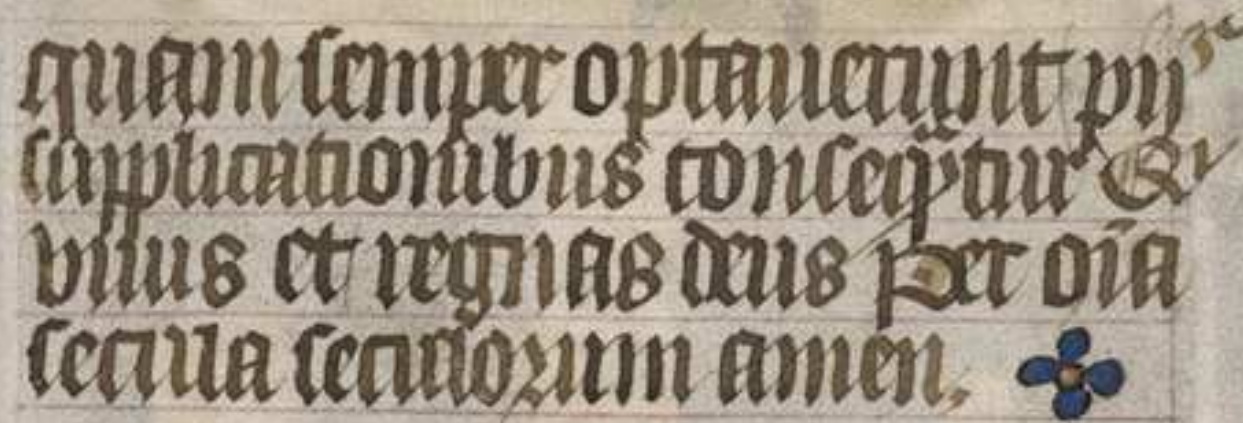 quam semper optauerunt pijs
supplicationibus conseqũtur Qi
viuis et regnas deus Per oīa
secula seculorum amen.